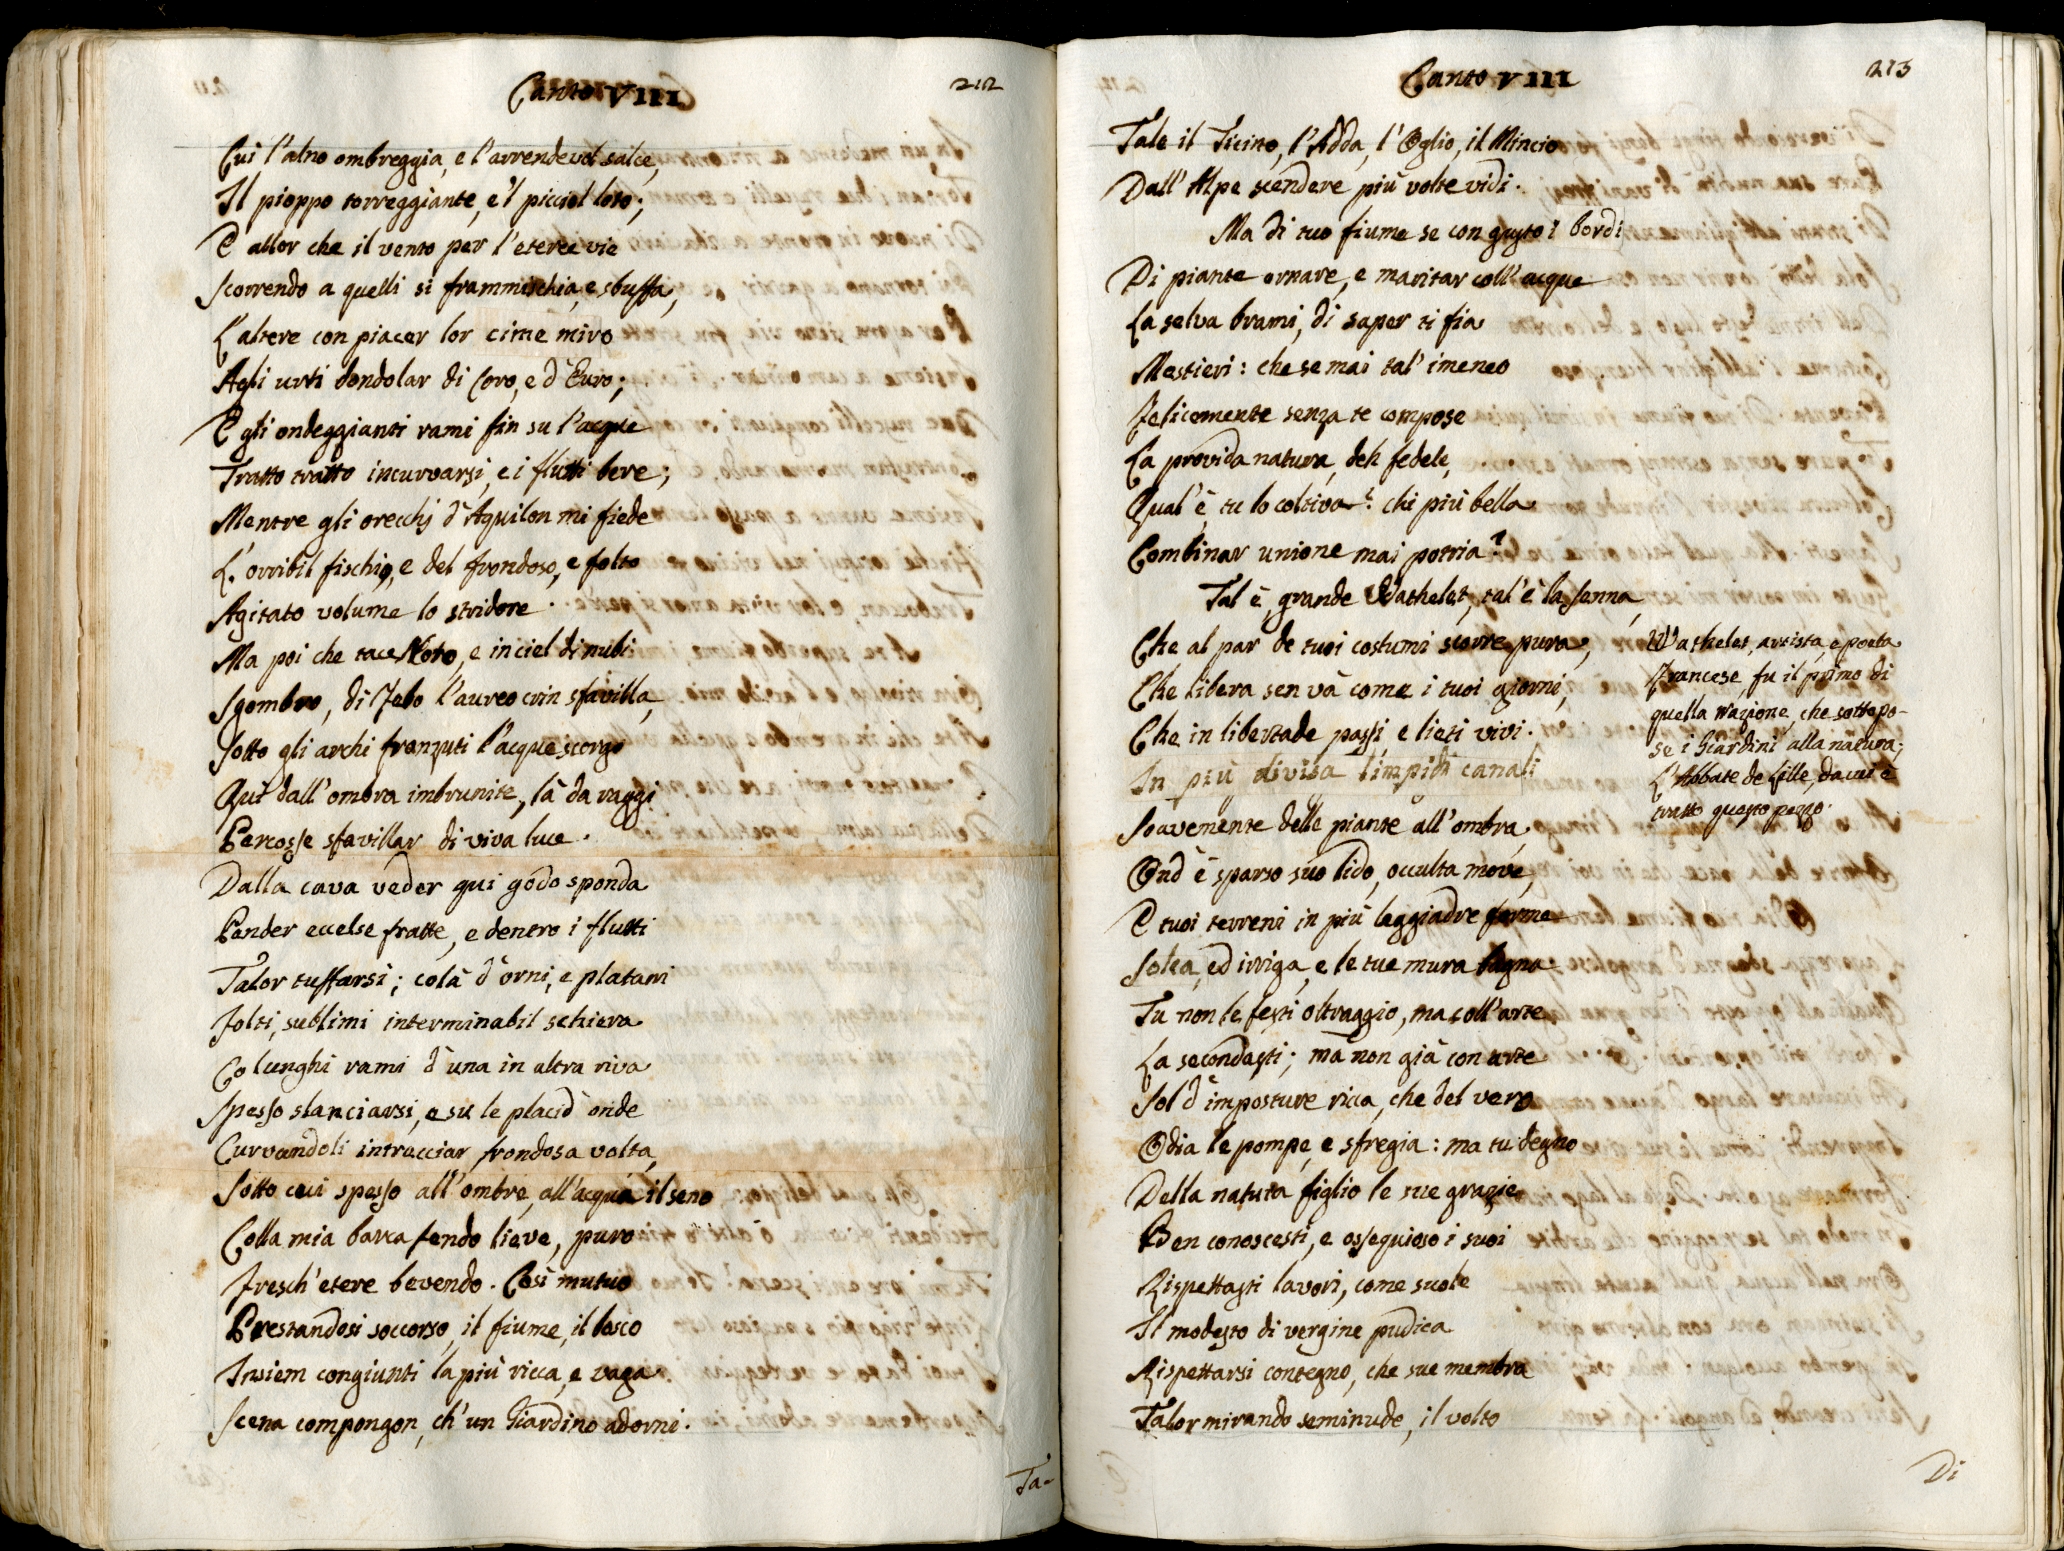 Canto VIII
212
Cui l'alno ombreggia, e l'arrendevol salce,
Il pioppo torreggiante, e'l picciol loto;
E allor che il vento per l'eteree vie
Scorrendo a quelli si frammischia, e sbuffa,
L'altere con piacer lor cime miro
Agli urti dondolar di Coro, e d'Euro;
E gli ondeggianti rami fin su l'acque
Tratto tratto incurvarsi, e i flutti bere;
Mentre gli orecchj d'Aquilon mi fiede
L'orribil fischio, e del frondoso, e folto
Agitato volume lo stridore.
Ma poi che tace Noto, e in ciel di nubi
Sgombro, di Febo l'aureo crin sfavilla,
Sotto gli archi fronzuti l'acque scorgo
Qui dall'ombra imbrunite, là da raggi
Percosse sfavillar di viva luce.
Dalla cava veder qui godo sponda
Pender eccelse fratte, e dentro i flutti
Talor tuffarsi; colà d'orni, e platani
Folti, sublimi interminabil schiera
Co lunghi rami d'una in altra riva
Spesso slanciarsi, e su le placid'onde
Curvandoli intracciar frondosa volta,
Sotto cui spesso all'ombre, all'acque il seno
Colla mia barca fendo lieve, puro
Fresch'etere bevendo. Così mutuo
Prestandosi soccorso, il fiume, il bosco
Insiem congiunti la più ricca, e vaga
Scena compongon, ch'un Giardino adorni.
Ta-
Canto VIII
213
Tale il Ticino, l'Adda, l'Oglio, il Mincio
Dall'Alpe scendere più volte vidi.
Ma di tuo fiume se con gusto i bordi
Di piante ornare, e maritar coll'acque
La selva brami, di saper ti fia
Mestieri: che se mai tal'imeneo
Felicemente senza te compose
La provida natura, deh fedele,
Qual'è, tu lo coltiva: chi più bella
Combinar unione mai potria?
Tal è, grande Wathelet, tal'è la Senna,
Che al par de tuoi costumi scorre pura,
Che libera sen và come i tuoi giorni,
Che in libertade passi, e lieti vivi.
In più divisa limpidi canali
Soavemente delle piante all'ombra,
Ond'è sparso suo lido, occulta move,
E tuoi terreni in più leggiadre forme
Solca, ed irriga, e le tue mura bagna.
Tu non le festi oltraggio, ma coll'arte
La secondasti; ma non già con arte
Sol d'imposture ricca, che del vero
Odia le pompe, e sfregia: ma tu degno
Della natura figlio le sue grazie
Ben conoscesti, e ossequioso i suoi
Rispettasti lavori, come suole
Il modesto di vergine pudica
Rispettarsi contegno, che sue membra
Talor mirando seminude, il volto
Wathelet, artista, e poeta
Francese, fu il primo di
quella Nazione, che sottopo-
se i Giardini alla natura;
L'Abbate de Lille, da cui è
tratto questo pezzo.
Di